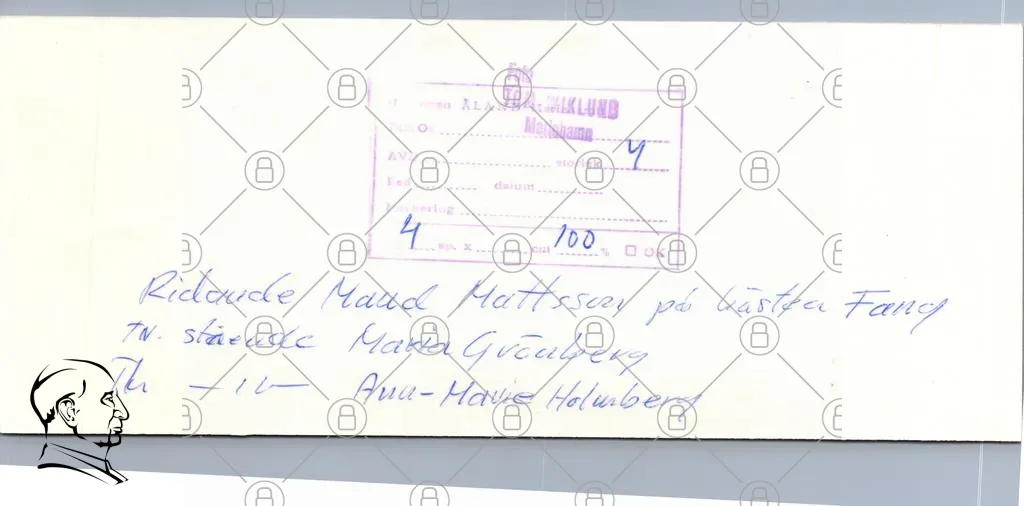 Foto
WIKLUND
Mariehamn
ÅLAND
AVD storlek 4
Red datum
4 sp. x cm 100 % OK
Ridande Maud Mattsson på hästen Fang
tv. stående Maria Grönberg
Th —"— Ann-Marie Holmberg